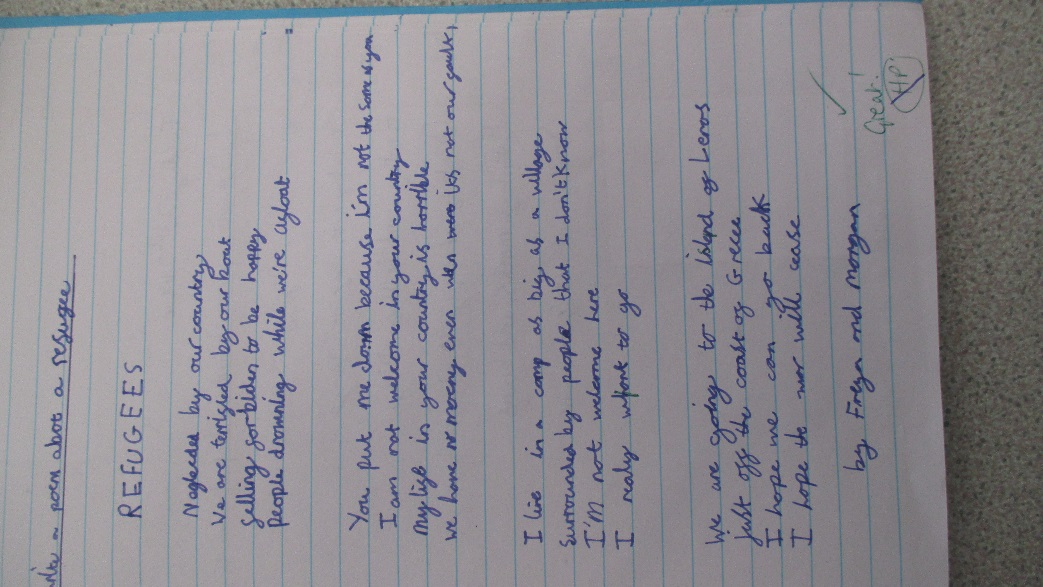 a poem abot a refugee
REFUGEES
Neglected by our country
We are terrified by our boat
felling forbiden to be happy
people drowning while we're afloat
You put me down because i'm not the same as you
I am not welcome in your country
My life in your country is horrible
we have no money even when its not our fault,
I live in a camp as big as a village
Surrounded by people that I don't know
I'M not welcome here
I realy want to go
We are going to the island of Leros
just off the coast of Greece
I hope we can go back
I hope the war will cease
by Freya and Morgan
Great!
HP